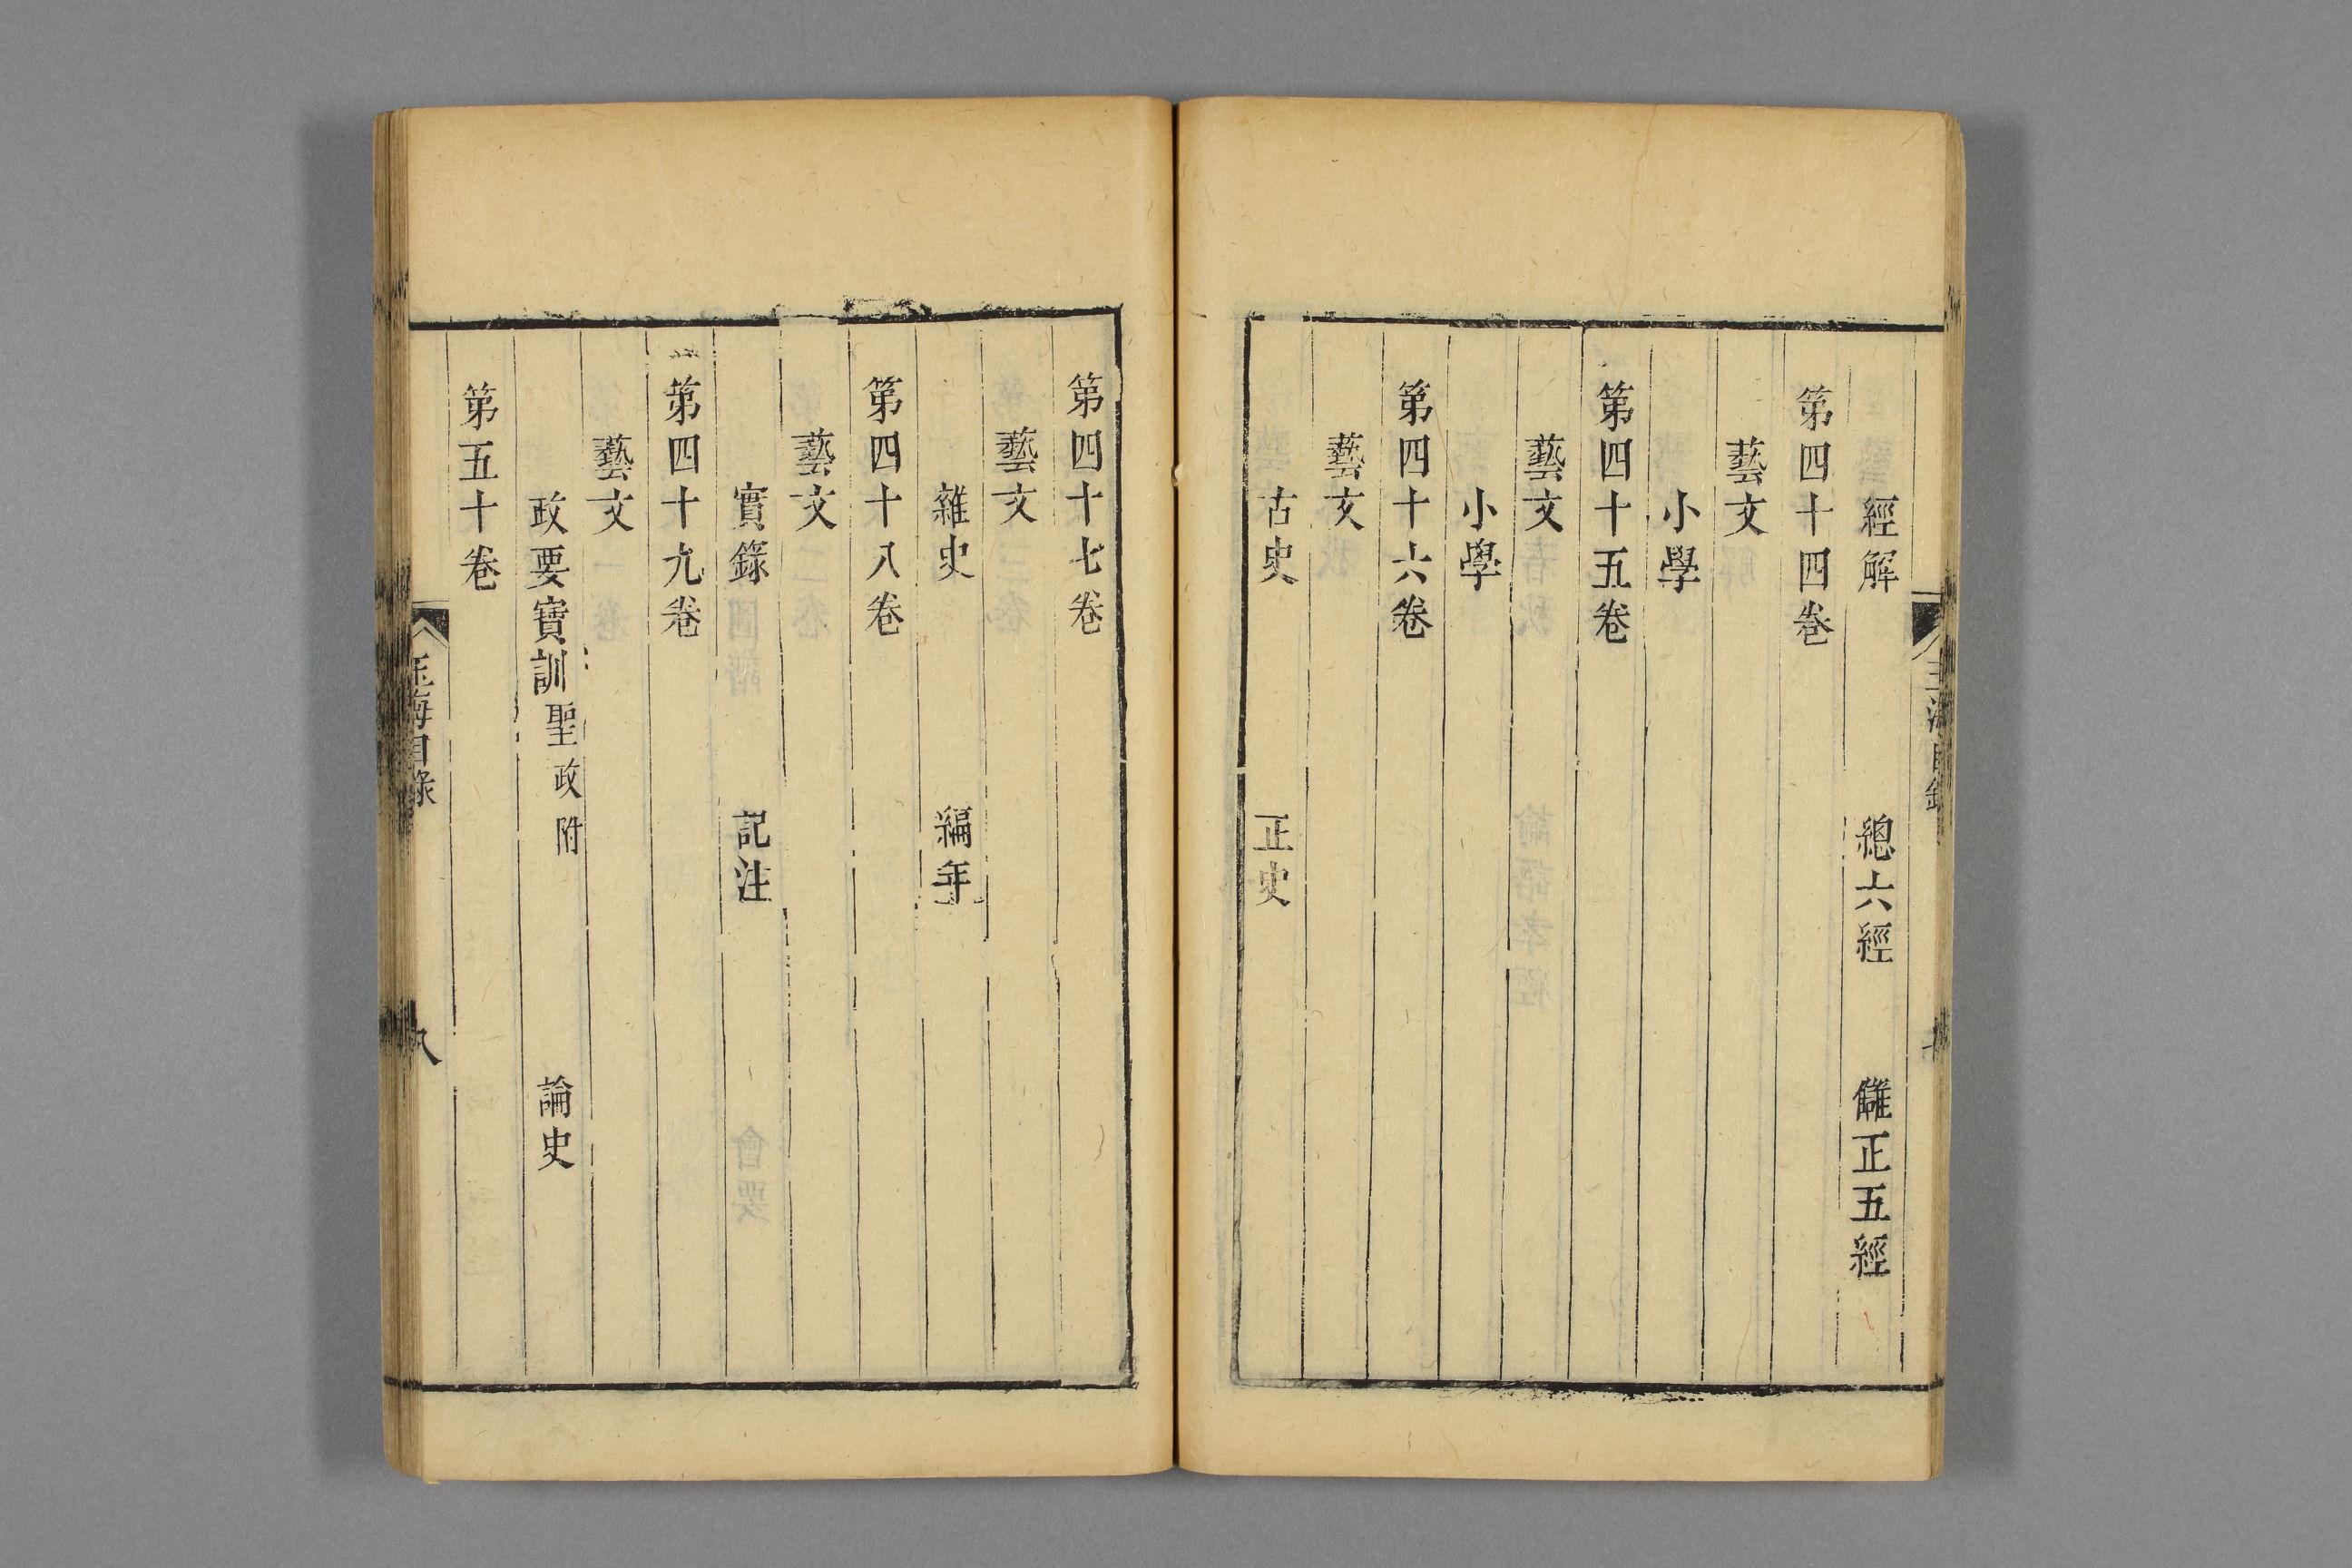 經解　總六經　讎正五經
第四十四卷
藝文
小學
第四十五卷
藝文
小學
第四十六卷
藝文
古史　正史
第四十七卷
藝文
雜史　編年
第四十八卷
藝文
實錄　記注
第四十九卷
藝文
政要寶訓聖政附　論史
第五十卷
玉海目錄
八